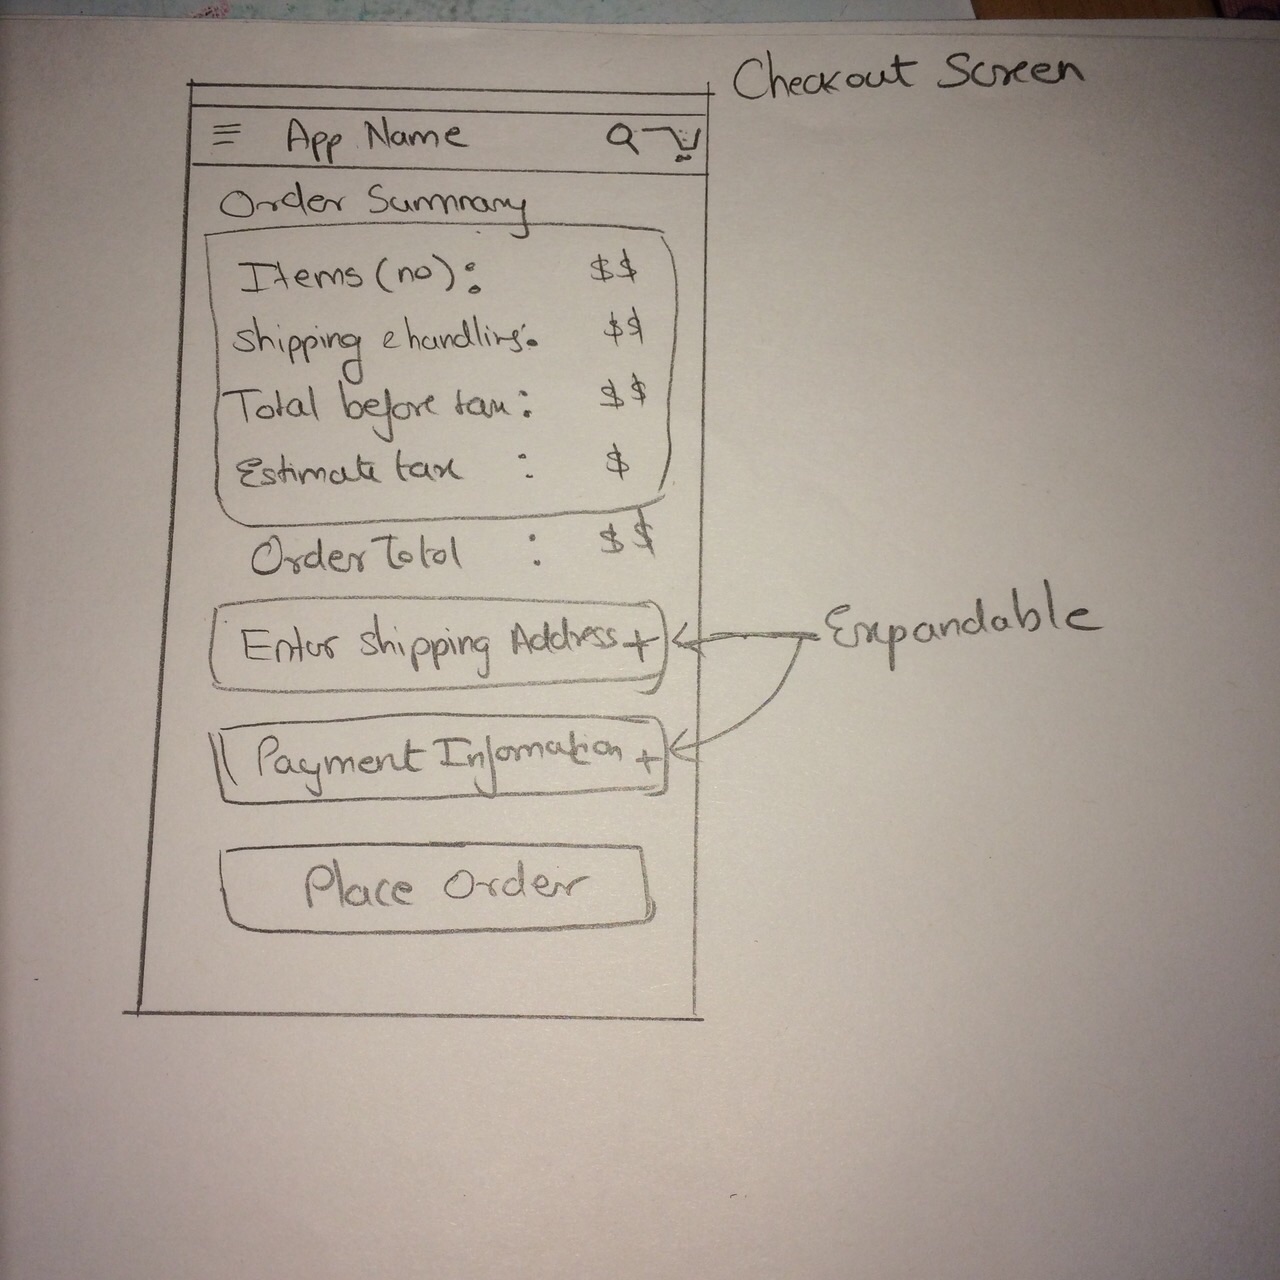 Checkout Screen
App Name
Order Summary
Items (no): $$
Shipping & handling: $$
Total before tax: $$
Estimate tax : $
Order Total : $$
Enter Shipping Address +
Expandable
Payment Information +
Place Order